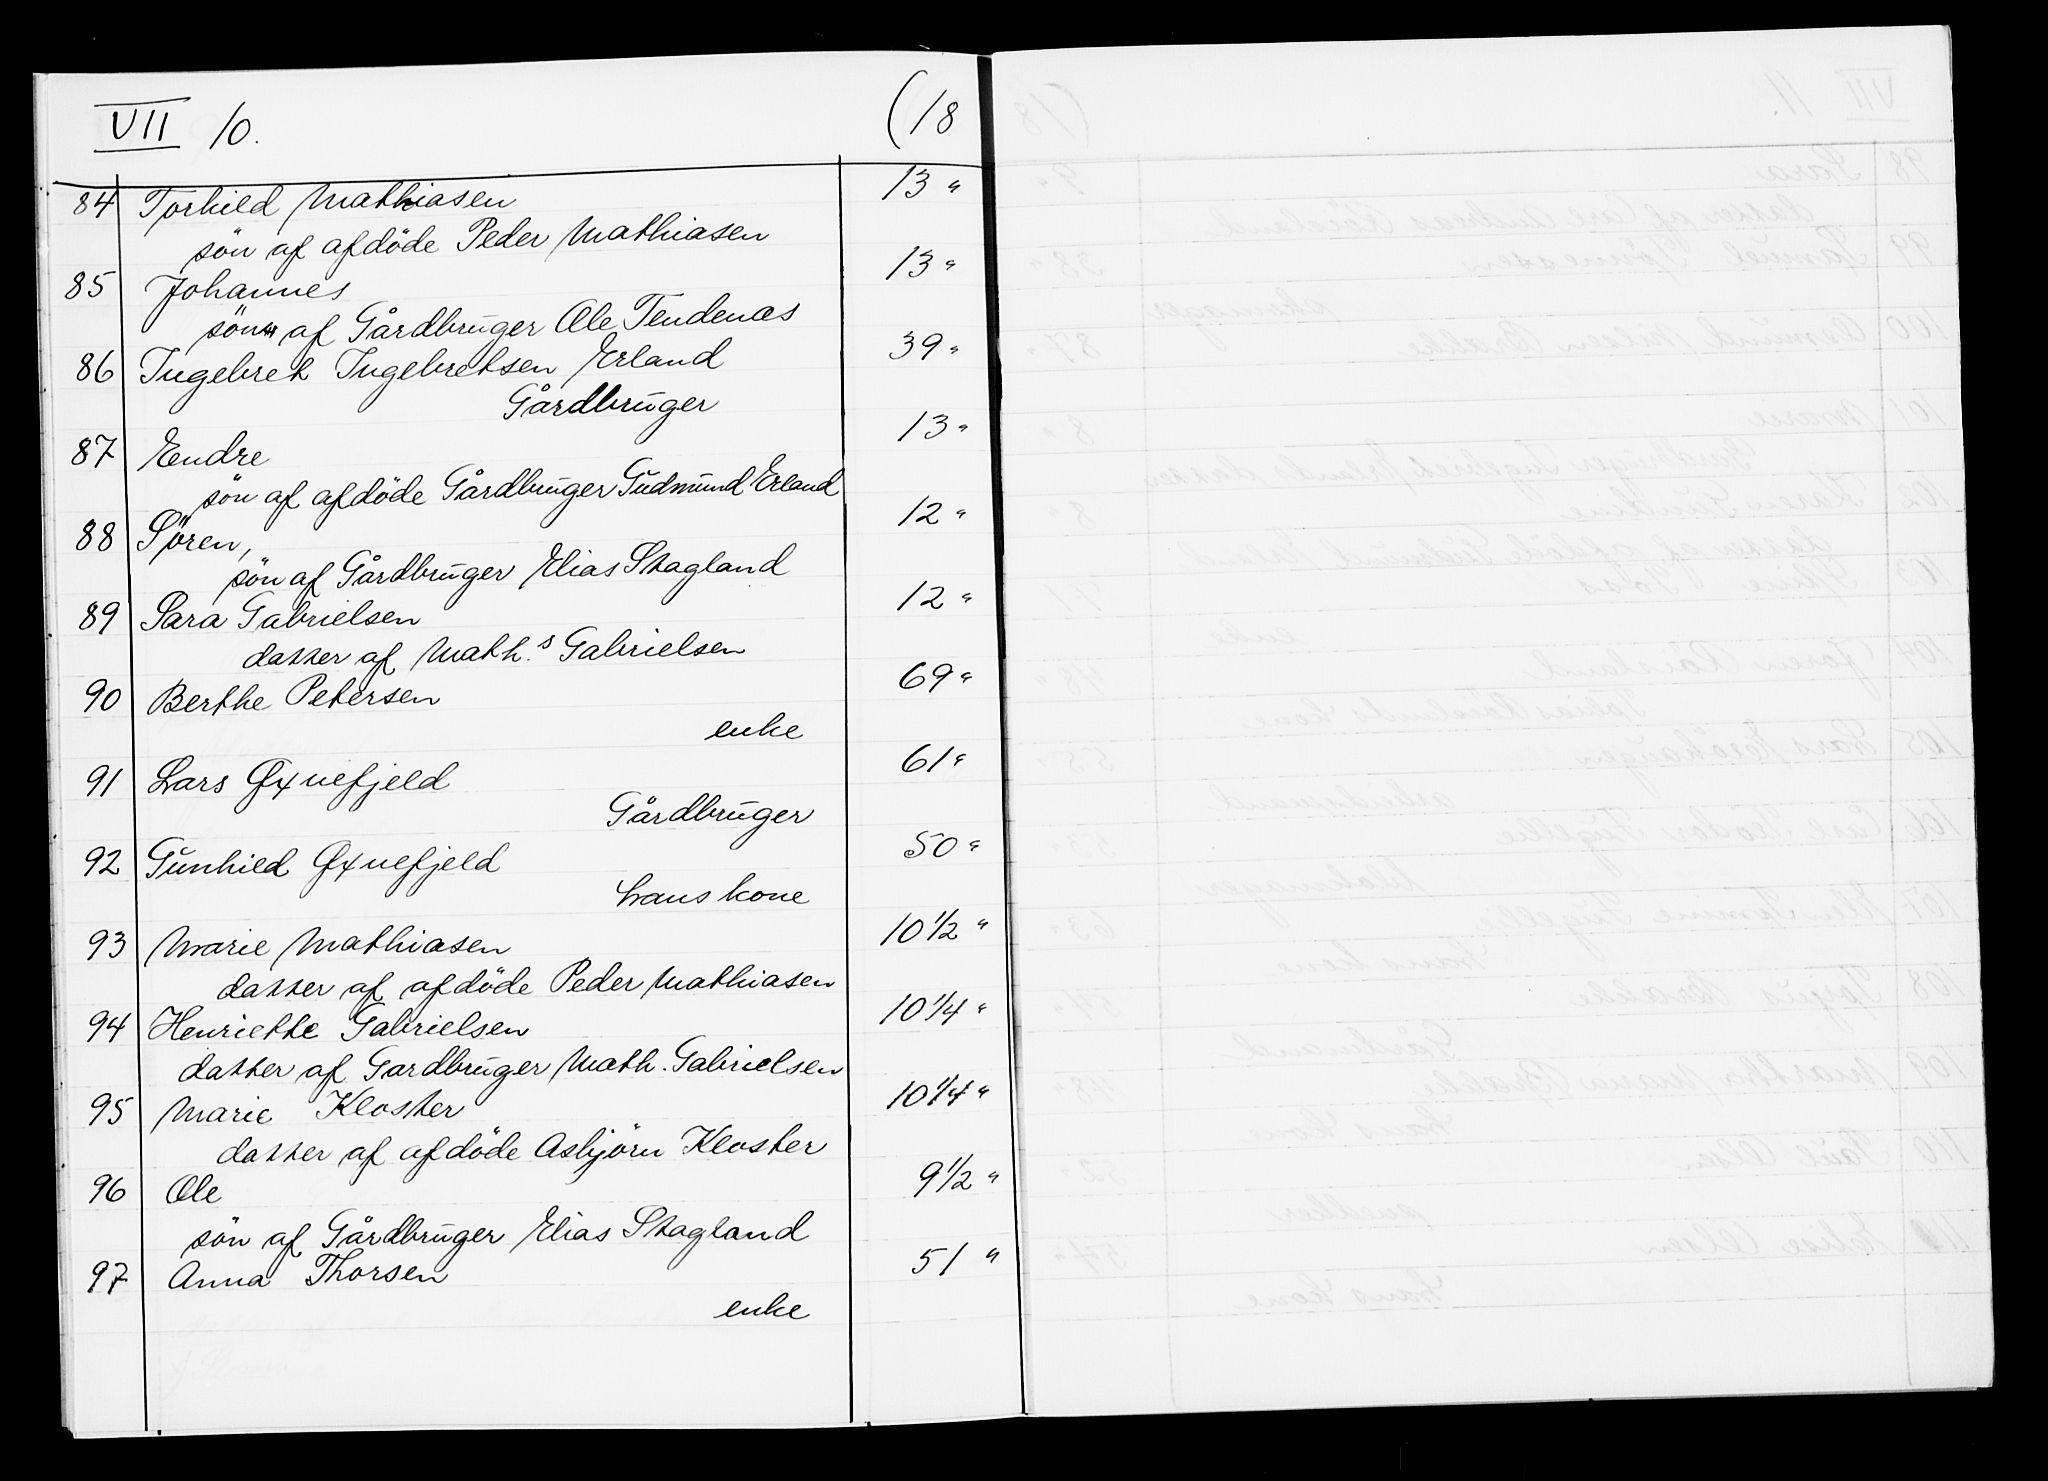 VII 10. (18
84 Torkild Mathiasen 13 "
sön af afdöde Peder Mathiasen
85 Johannes 13 "
sön af Gårdbruger Ole Tendenæs
86 Ingebret Ingebretsen Erland 39 "
Gårdbruger
87 Endre 13 "
sön af afdöde Gårdbruger Gudmund Erland
88 Søren, 12 "
sön af Gårdbruger Elias Stagland
89 Sara Gabrielsen 12 "
datter af Math.s Gabrielsen
90 Berthe Petersen 69 "
enke
91 Lars Øxnefjeld 61 "
Gårdbruger
92 Gunhild Øxnefjeld 50 "
hans kone
93 Marie Mathiasen 10 1/2 "
datter af afdöde Peder Mathiasen
94 Henriette Gabrielsen 10 1/4 "
datter af Gardbruger Math. Gabrielsen
95 Marie Kloster 10 1/4 "
datter af afdöde Asbjörn Kloster
96 Ole 9 1/2 "
sön af Gårdbruger Elias Stagland
97 Anna Thorsen 51 "
enke